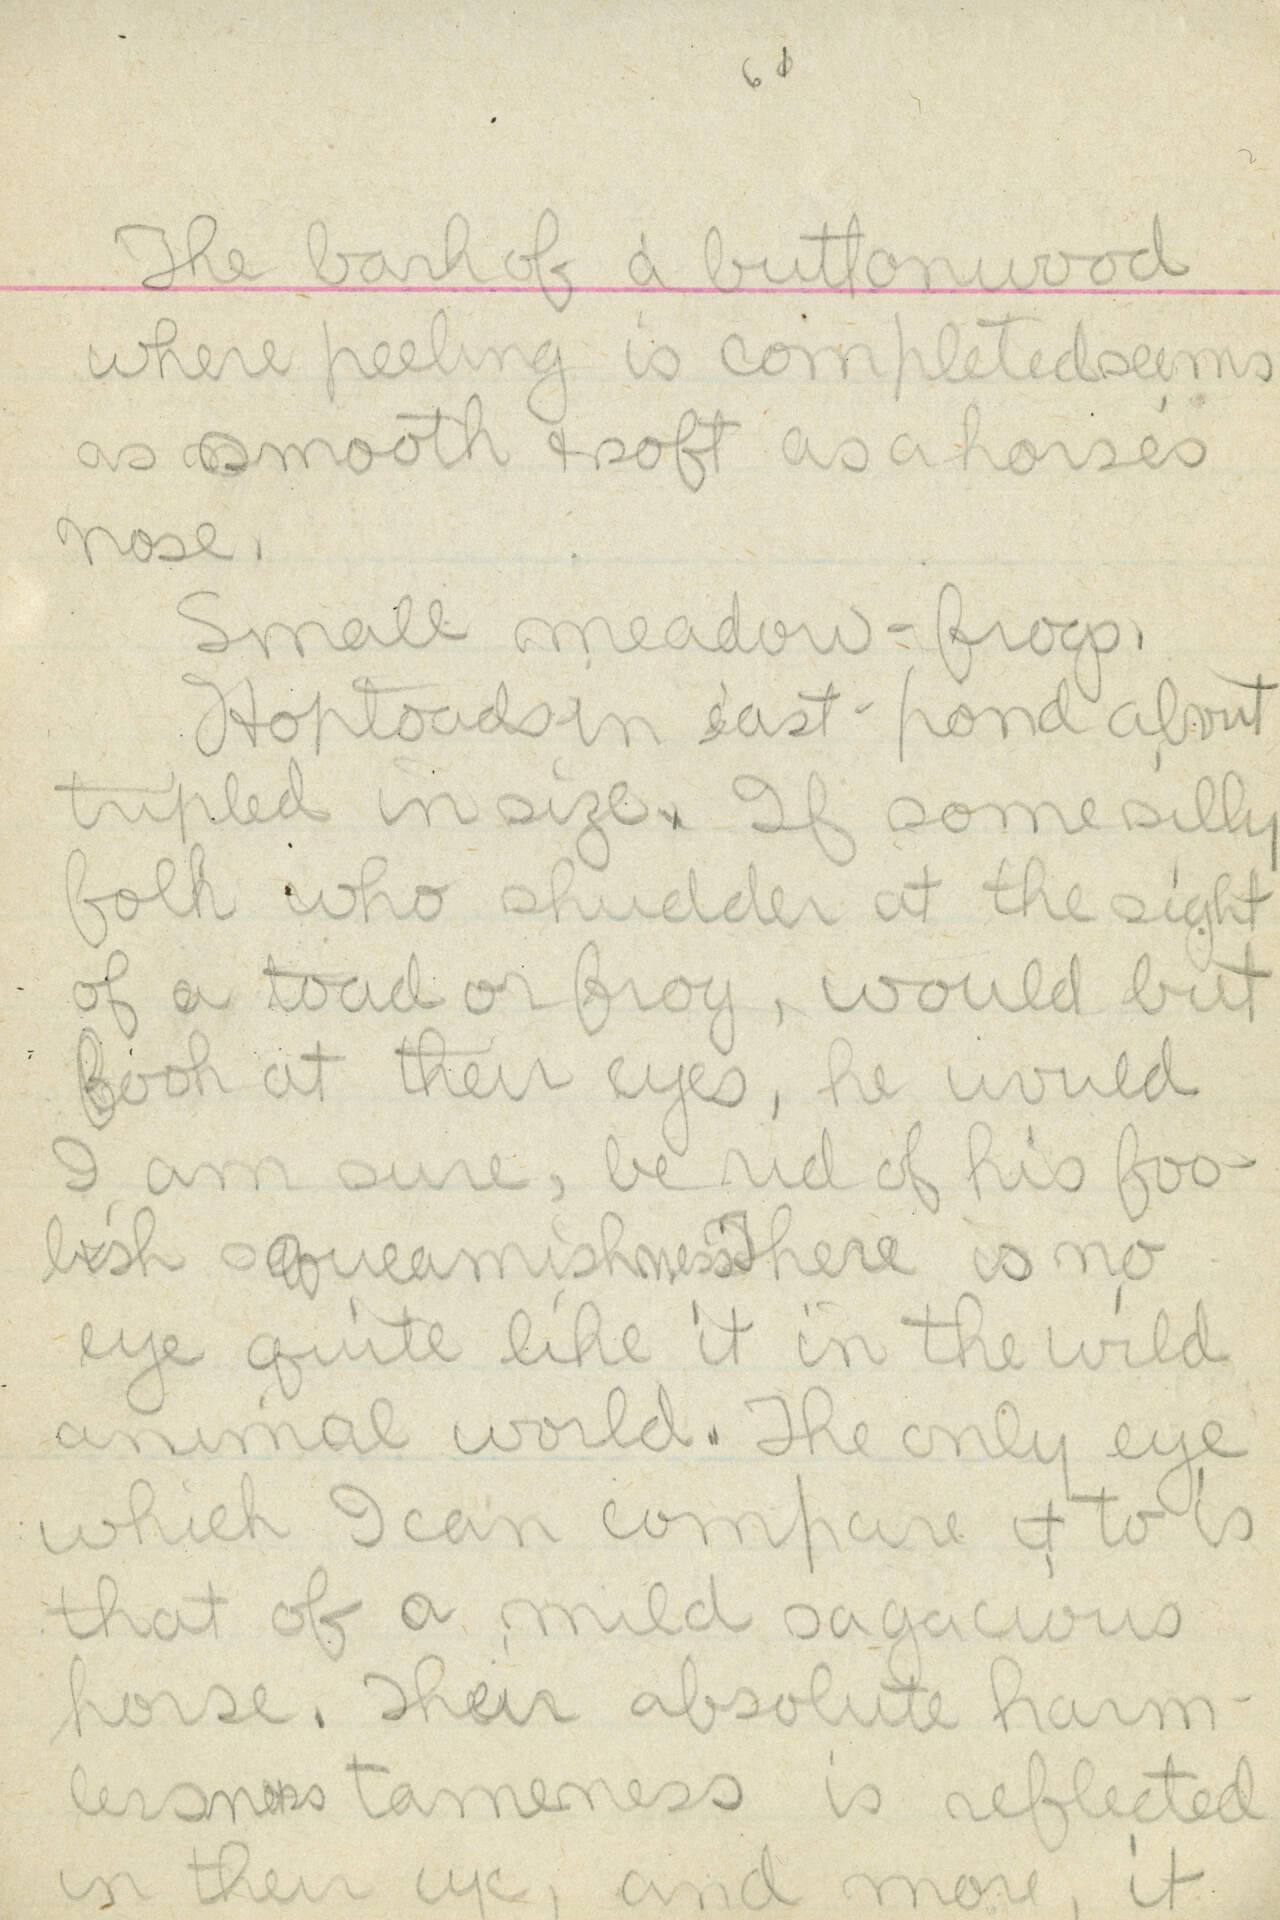 The bark of a buttonwood
where peeling is completed seems
as smooth & soft as a horse's
nose.
Small meadow-frogs.
Hoptoads in east-pond about
tripled in size. If some silly
folk who shudder at the sight
of a toad or frog, would but
look at their eyes, he would
I am sure, be rid of his foo-
lish squeamishness. There is no
eye quite like it in the wild
animal world. The only eye
which I can compare it to is
that of a mild sagacious
horse. Their absolute harm-
lessness tameness is reflected
in their eye, and more, it